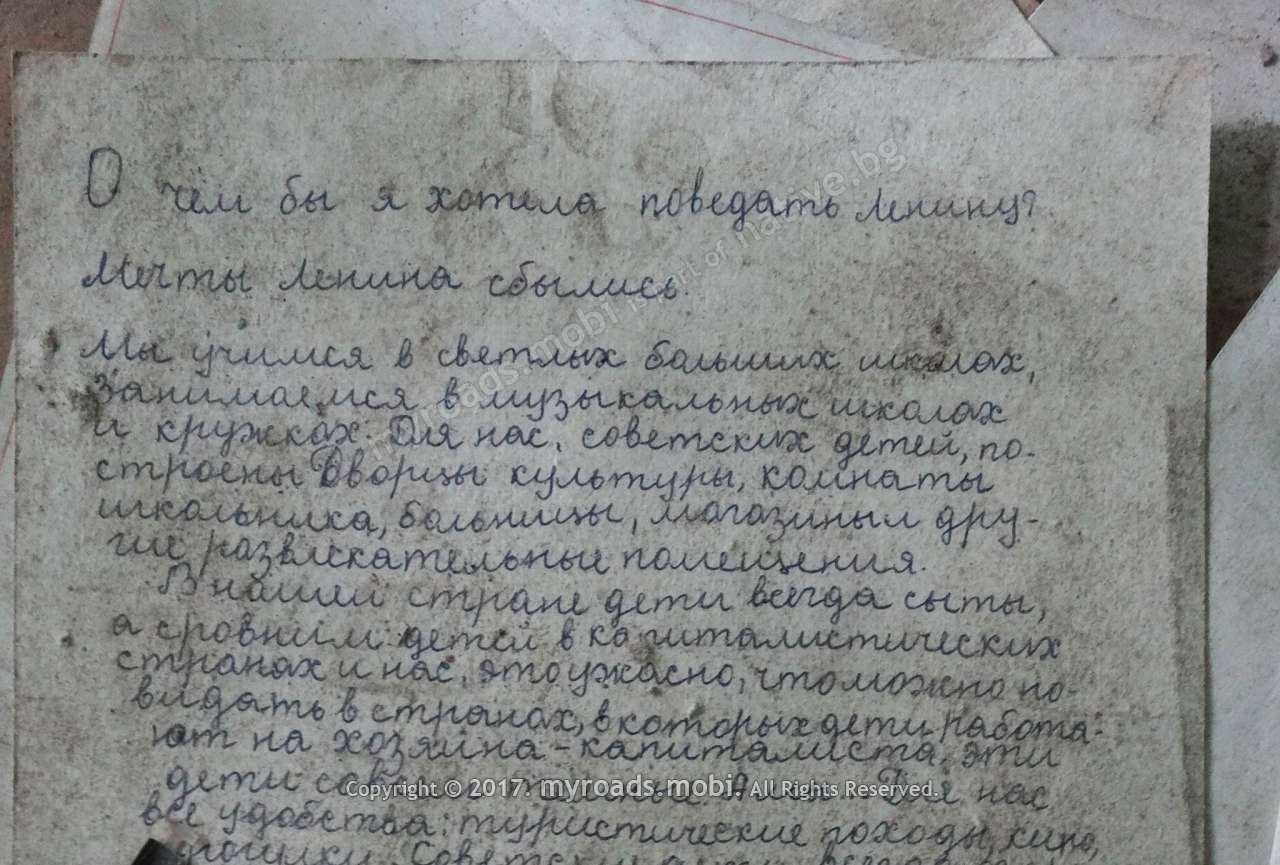 О чём бы я хотела поведать Ленину?
Мечты Ленина сбылись.
Мы учимся в светлых больших школах,
занимаемся в музыкальных школах
и кружках. Для нас, советских детей, по-
строены Дворцы культуры, комнаты
школьника, больницы, магазины и дру-
гие развлекательные помещения.
В нашей стране дети всегда сыты,
а сровним детей в капиталистических
странах и нас, это ужасно, что можно по-
видать в странах, в которых дети работа-
ют на хозяина - капиталиста, эти
дети нас
все удобства: туристические походы, кино,
myroads.mobi is part of native.bg
Copyright © 2017. myroads.mobi. All Rights Reserved.